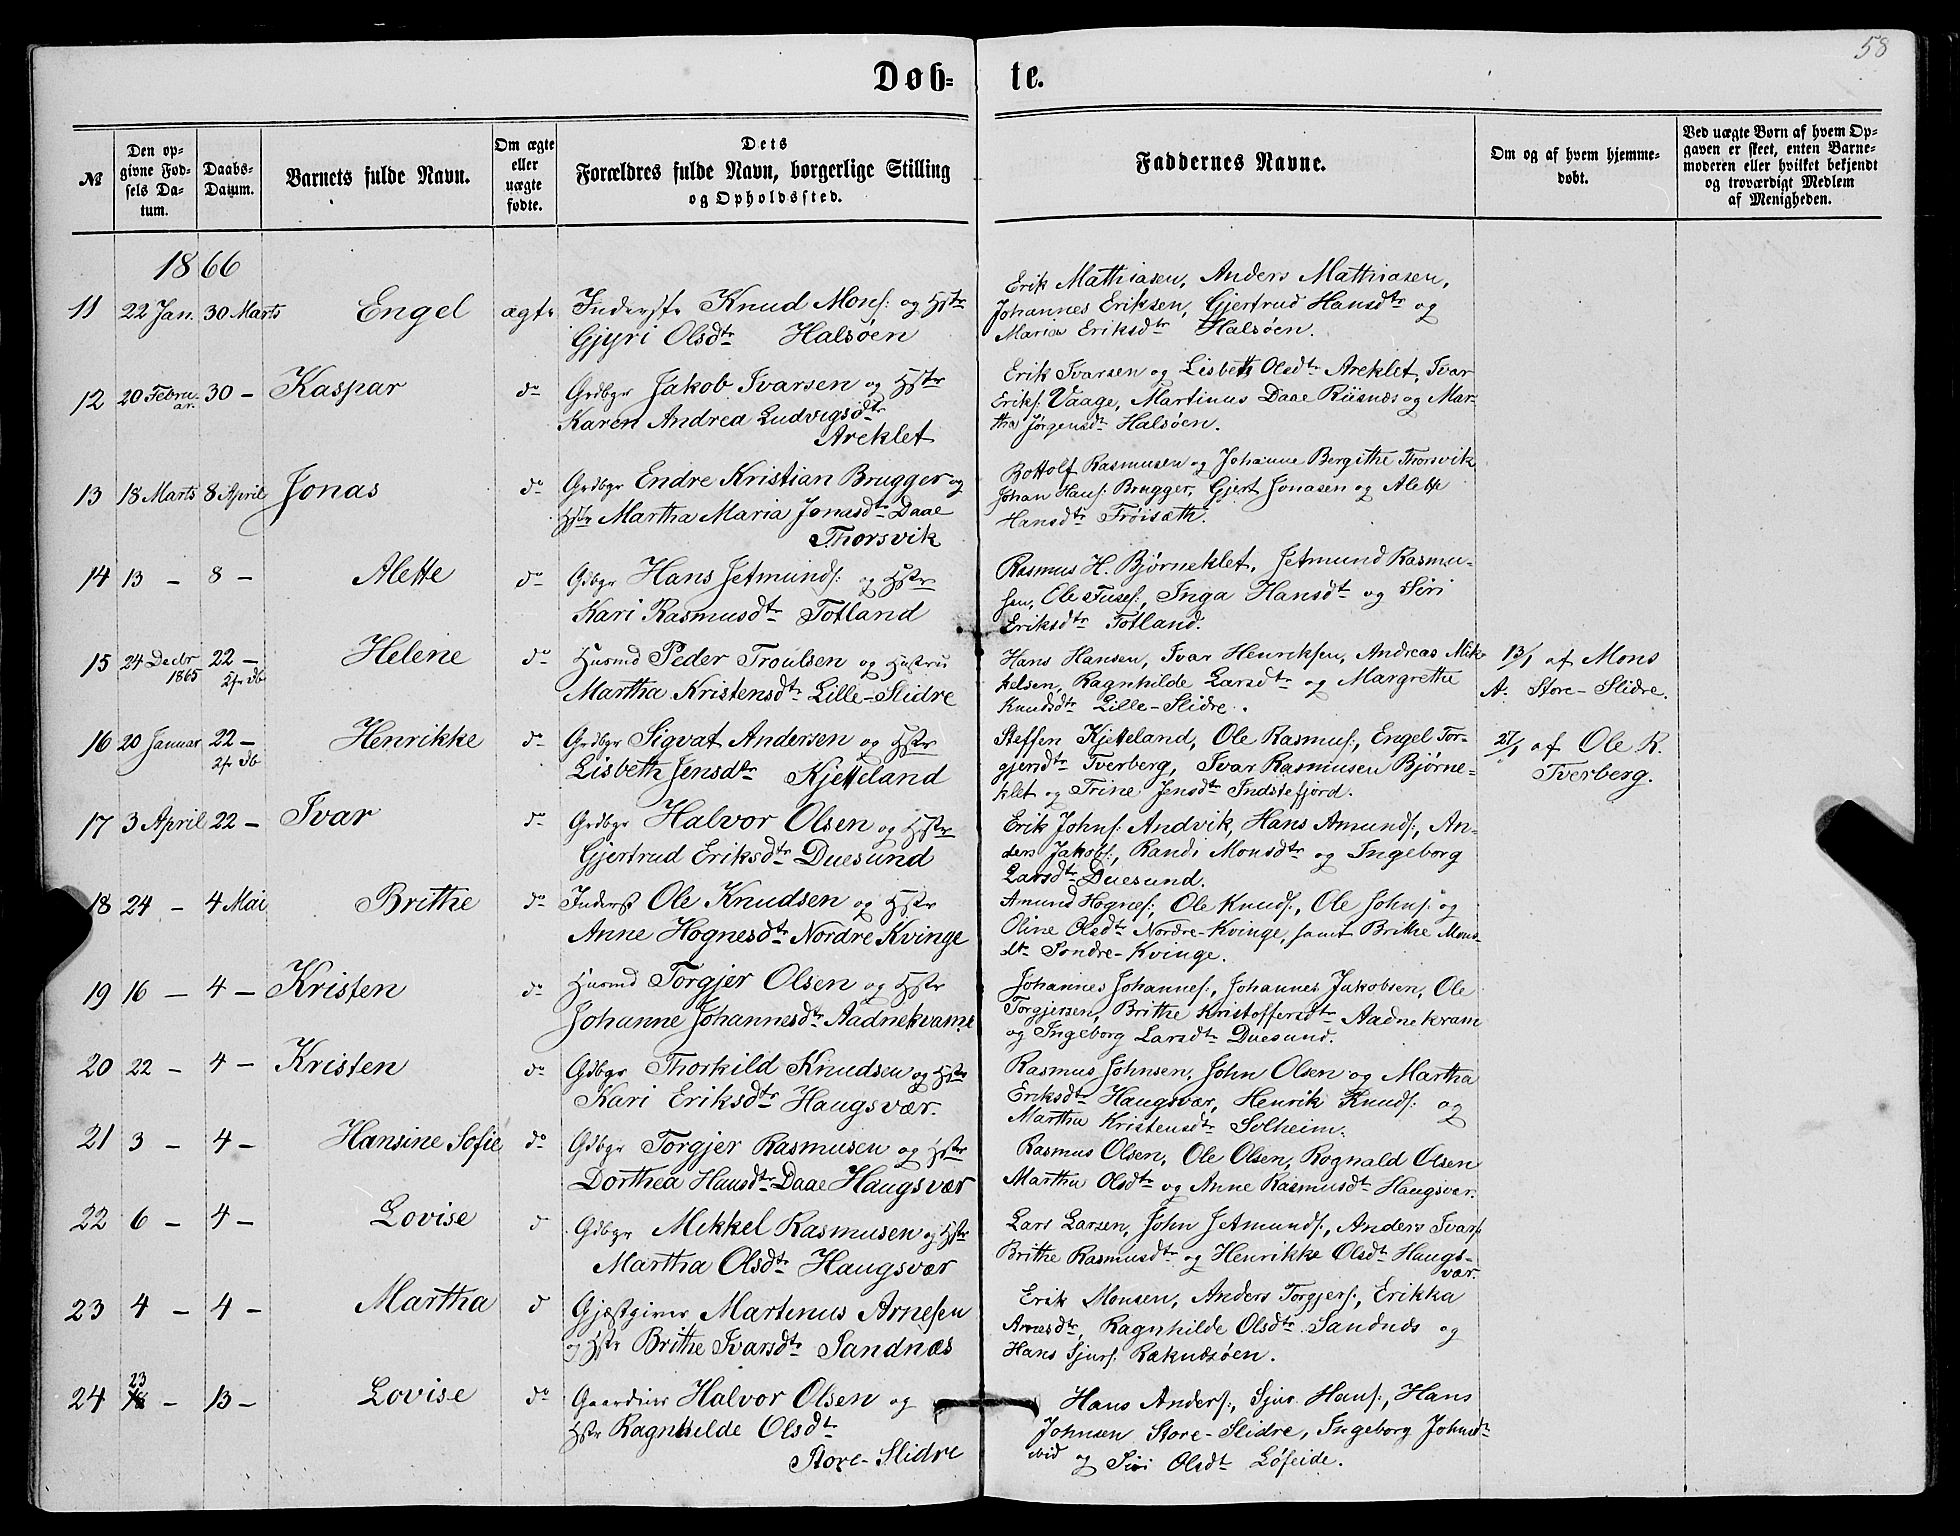 58
Døb- te.
№
Den op-
givne Fød-
sels Da-
tum.
Daabs-
Datum.
Barnets fulde Navn.
Om ægte
eller
uægte
fødte.
Dets
Forældres fulde Navn, borgerlige Stilling
og Opholdssted.
Faddernes Navne.
Om og af hvem hjemme-
døbt.
Ved uægte Børn af hvem Op-
gaven er skeet, enten Barne-
moderen eller hvilket bekjendt
og troværdigt Medlem
af Menigheden.
1866
11 22 Jan. 30 Marts Engel ægte Inderste Knud Mons: og Hstr
Gjyri Olsdtr Halsøen
Erik Mathiasen, Anders Mathiasen,
Johannes Eriksen, Gjertrud Hansdtr og
Maria Eriksdtr Halsøen.
12 20 Febru- 30 - Kaspar do Grdbgr Jakob Ivarsen og Hstr
ar.
Karen Andrea Ludvigsdtr
Areklet
Erik Ivarsen og Lisbeth Olsdtr Areklet, Ivar
Eriks: Vaage, Martinus Daae Riisnæs og Mar-
tha Jørgensdtr Halsøen.
13 18 Marts 8 April Jonas do Grdbgr Endre Kristian Brugger og
Hstr Martha Maria Jonasdtr Daae
Thorsvik
Bottolf Rasmusen og Johanne Bergithe Thorsvik,
Johan Hans: Brugger, Gjert Jonasen og Alette
Hansdtr Frøisæth.
14 13 - 8 - Alette do Gdbgr Hans Jetmunds: og Hstr
Kari Rasmusdtr Totland
Rasmus H. Bjørneklet, Jetmund Rasmu-
sen, Ole Fuses:, Inga Hansdtr og Siri
Eriksdtr Totland.
15 24 Decbr 22 - Helene do Husmd Peder Troulsen og Hustru
1865
Martha Kristensdtr Lille-Slidre
Hans Hansen, Ivar Henriksen, Andreas Mik-
kelsen, Ragnhilde Larsdtr og Margrethe
Knudsdtr Lille-Slidre.
13/1 af Mons
A. Store-Slidre.
16 20 Januar 22 - Henrikke do Grdbgr Sigvat Andersen og Hstr
Lisbeth Jensdtr Kjetteland
Steffen Kjetteland, Ole Rasmus:, Engel Tor-
gjersdtr Tverberg, Ivar Rasmusen Bjørne-
klet og Trine Jensdtr Indstefjord.
27/1 af Ole R.
Tverberg.
17 3 April 22 - Ivar do Grdbgr Halvor Olsen og Hstr
Gjertrud Eriksdtr Duesund
Erik Johns: Andvik, Hans Amunds:, An-
ders Jakobs:, Randi Monsdtr og Ingeborg
Larsdtr Duesund.
18 24 - 4 Mai Brithe do Inderst Ole Knudsen og Hstr
Anne Hognesdtr Nordre Kvinge
Amund Hognes:, Ole Knuds:, Ole Johns: og
Oline Olsdtr Nordre-Kvinge, samt Brithe Mons-
dtr Søndre-Kvinge.
19 16 - 4 - Kristen do Husmd Torgjer Olsen og Hstr
Johanne Johannesdtr Aadnekvame
Johannes Johannes:, Johannes Jakobsen, Ole
Torgjersen, Brithe Kristoffersdtr Aadnekvam
og Ingeborg Larsdtr Duesund.
20 22 - 4 - Kristen do Gdbgr Thorkild Knudsen og Hstr
Kari Eriksdtr Haugsvær.
Rasmus Johnsen, John Olsen og Martha
Eriksdtr Haugsvær, Henrik Knuds: og
Martha Kristensdtr Solheim.
21 3 - 4 - Hansine Sofie do Gdbgr Torgjer Rasmusen og Hstr
Dorthea Hansdtr Daae Haugsvær
Rasmus Olsen, Ole Olsen, Rognald Olsen
Martha Olsdtr og Anne Rasmusdtr Haugsvær.
22 6 - 4 - Lovise d Gdbgr Mikkel Rasmusen og Hstr
Martha Olsdtr Haugsvær
Lars Larsen, John Jetmunds:, Anders Ivars:
Brithe Rasmusdtr og Henrikke Olsdtr Haugs-
vær.
23 4 - 4 - Martha d Gjæstgiver Martinus Arnesen
og Hstr Brithe Ivarsdtr Sandnæs
Erik Monsen, Anders Torgjers:, Erikka
Arnesdtr, Ragnhilde Olsdtr Sandnæs og
Hans Sjurs: Raknesøen.
24 23 - 13 - Lovise do Gaardmr Halvor Olsen og
Hstr Ragnhilde Olsdtr
Store-Slidre
Hans Anders:, Sjur Hans:, Hans
Johnsen Store-Slidre, Ingeborg Johnsdtr
ibid og Siri Olsdtr Løfeide.